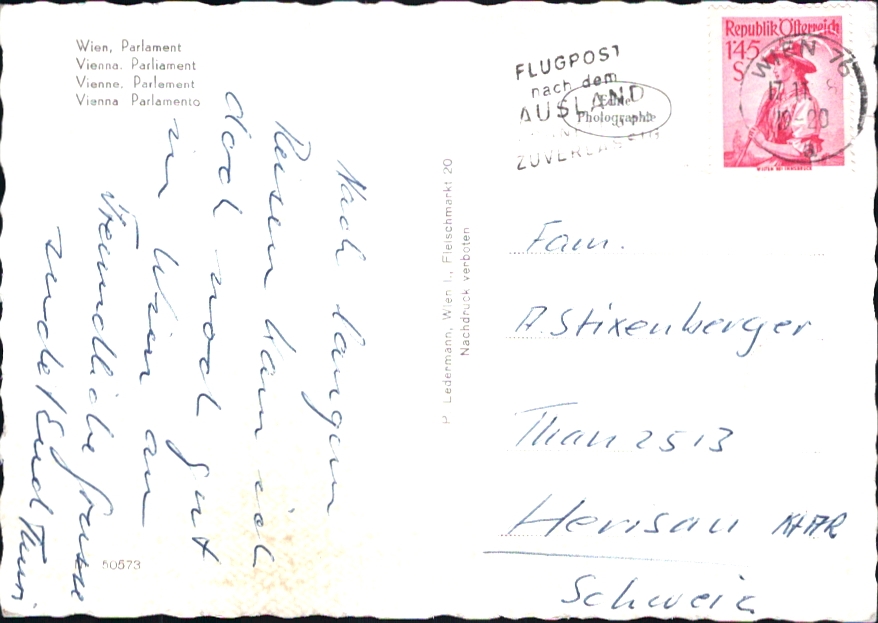 Wien, Parlament
Vienna. Parliament
Vienne. Parlement
Vienna Parlamento
Nach langem
Reisen kam ich
doch noch gut
in Wien an
Freundliche Grüsse
sendet Euch
50573
P. Ledermann, Wien I., Fleischmarkt 20
Nachdruck verboten
FLUGPOST
nach dem
AUSLAND
Echte
Photographie
Republik Österreich
1.45
S
WIEN 76
Fam.
A. Stixenberger
Herisau
Schweiz